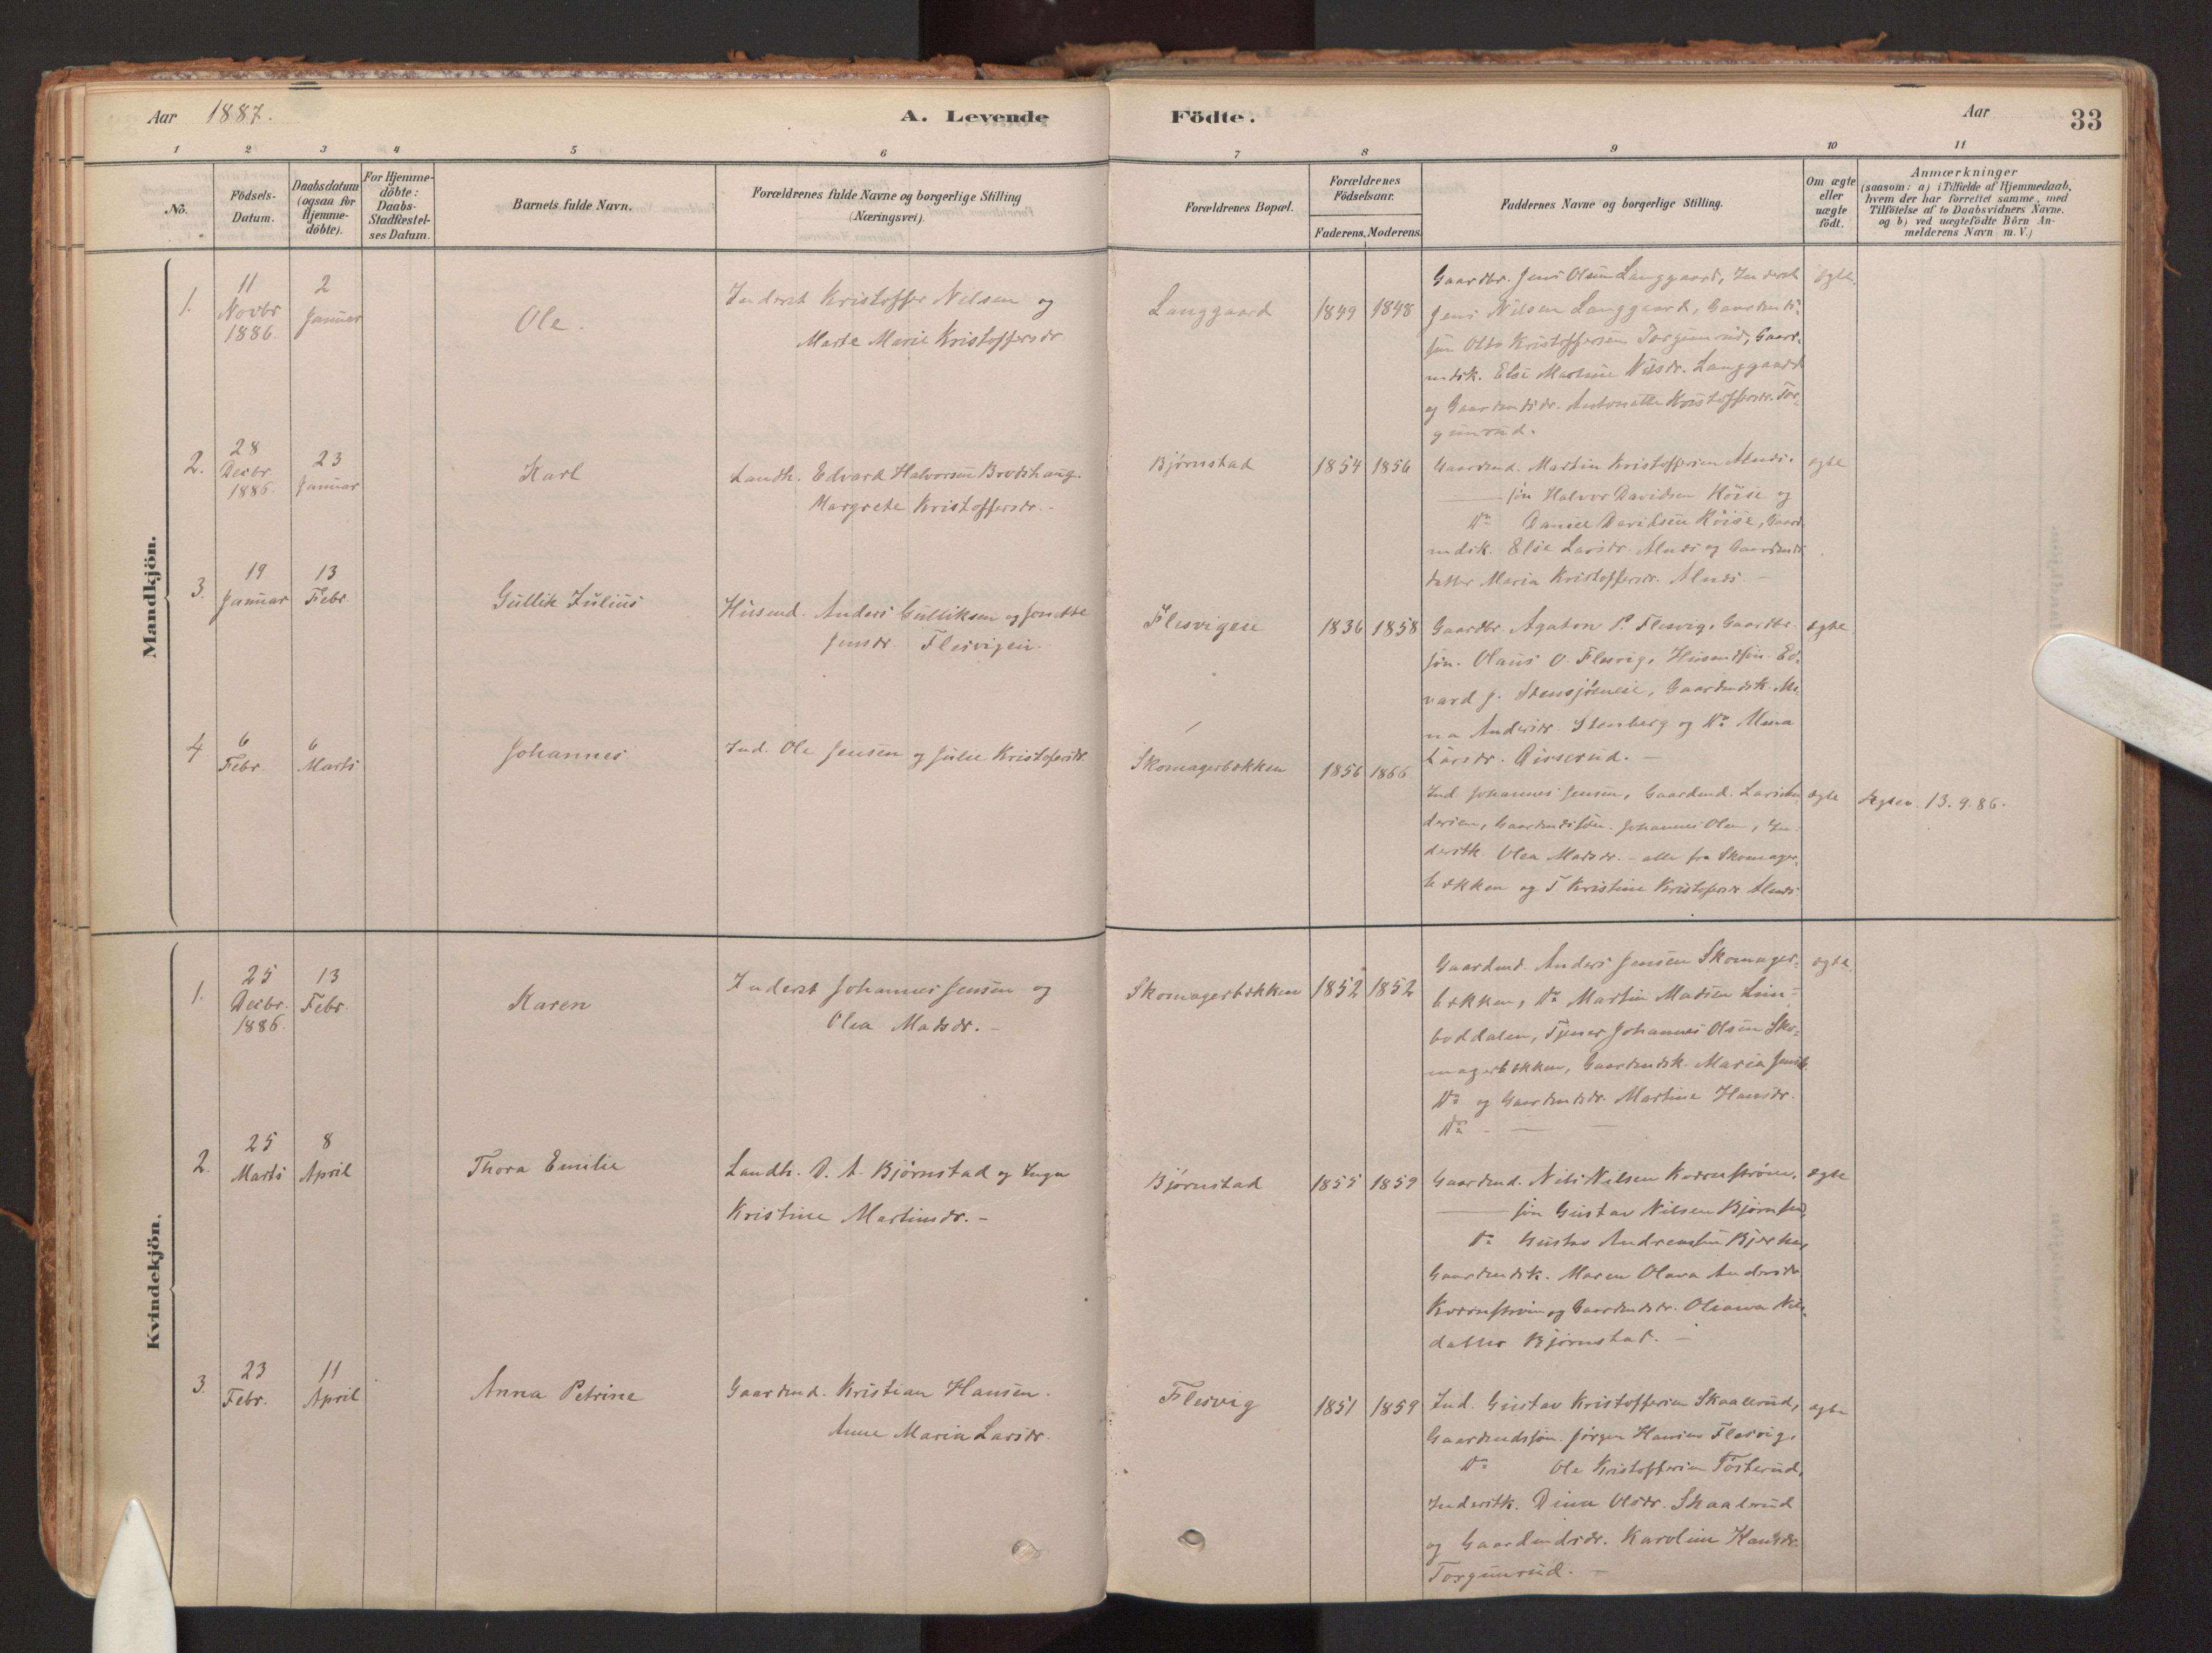 Aar 1887.
A. Levende
Födte.
Aar
33
1 2 3 4 5 6 7 8 9 10 11
No.
Födsels-Datum.
Daabsdatum (ogsaa for Hjemme-döbte).
For Hjemme-döbte: Daabs-Stadfæstel-ses Datum.
Barnets fulde Navn.
Forældrenes fulde Navne og borgerlige Stilling (Næringsvei).
Forældrenes Bopæl.
Forældrenes Födselsaar.
Faderens. Moderens.
Faddernes Navne og borgerlige Stilling.
Om ægte eller uægte födt.
Anmærkninger
(saasom: a) i Tilfælde af Hjemmedaab,
hvem der har forrettet samme, med
Tilföielse af to Daabsvidners Navne.
og b) ved uægtefödte Börn An-
melderens Navn m. V.)
Mandkjön.
1. 11 Novbr 1886. 2 Januar
Ole.
Inderst Kristoffer Nilsen og
Marte Marie Kristoffersdr.
Langgaard 1849 1848
Gaardbr. Jens Olsen Langgaard, Inderst
Jens Nilsen Langgaard, Gaardmds.
søn Otto Kristoffersen Torgunrud, Gaard-
mdsk. Else Martine Nilsdr. Langgaard
og Gaardmdsdr. Antonette Kristoffersdr. Tor-
gunrud.
ægte.
2. 28 Decbr. 1886. 23 Januar
Karl
Landh. Edvard Halvorsen Brodshaug.
Margrete Kristoffersdr. -
Bjørnstad 1854 1856
Gaardmd. Martin Kristoffersen Alnæs.
søn Halvor Davidsen Röise og
Do Daniel Davidsen Röise, Gaard-
mdsk. Else Larsdr. Alnæs og Gaardmds
datter Maria Kristoffersdr. Alnæs. -
ægte
3. 19 Januar 13 Febr.
Gullik Julius
Husmd. Anders Gulliksen og Jonette
Jensdr. Flesvigen.
Flesvigen 1836 1858
Gaardbr. Agaton P. Flesvig, Gaardbr.
søn. Olaus O. Flesvig, Husmdsøn Ed-
vard J. Stensjöneie, Gaardmdsk. Ma-
na Andersdr. Stenberg og Do Mina
Larsdr. Dirserud. -
ægte
4 6 Febr. 6 Marts
Johannes
Ind. Ole Jensen og Julie Kristofersdr.
Skomagerbækken 1856 1866
Ind. Johannes Jensen, Gaardmd. Lars An-
dersen, Gaardmdssøn. Johannes Olsen, In-
derstk Olea Madsdr. - alle fra Skomager-
bækken og T Kristine Kristofersdr. Alnæs
ægte
Ægtev. 13.9.86.
Kvindekjön.
1. 25 Decbr. 1886. 13 Febr.
Karen
Inderst Johannes Jensen og
Olea Madsdr. -
Skomagerbækken 1852 1852
Gaardmd. Anders Jensen Skomager-
bækken, Do Martin Madsen Lin-
boddalen, Tjener Johannes Olsen Sko-
magerbækken, Gaardmdsk. Maria Jensdr.
Do og Gaardmdsdr. Martine Hansdr.
Do -
ægte.
2. 25 Marts 8 April
Thora Emilie
Landh. D. A. Bjørnstad og Inga
Kristine Martinsdr. -
Bjørnstad 1855 1859
Gaardmd. Nils Nilsen Kværnstrøm,
søn Gustav Nilsen Bjørnstad,
Do Gustav Andreassen Bjerke,
Gaardmdsk. Maren Olava Andersdr.
Kværnstrøm og Gaardmdsdr. Oliana Nils-
datter Bjørnstad. -
ægte
3. 23 Febr. 11 April
Anna Petrine
Gaardmd. Kristian Hansen.
Anne Maria Larsdr.
Flesvig 1851 1859
Ind. Gustav Kristoffersen Skaalerud,
Gaardmdssøn. Jörgen Hansen Flesvig,
Do Ole Kristoffersen Tösterud,
Inderstk. Dina Olsdr. Skaalerud
og Gaardmdsdr. Karoline Hansdr.
Torgunrud. -
ægte